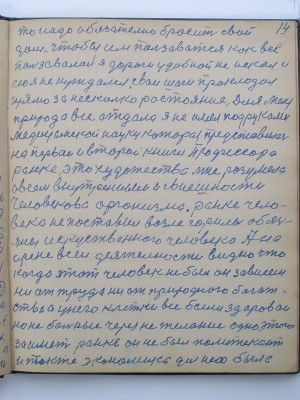 14
то надо обязательно бросить свой
дом, чтобы им ползоватся как все
ползвалай я дороги удобной не искал и
не нуждался, свои шаги проклодол
прямо за несколко ростояние, Для мене
природа все отдала я не имел под руками
медецинской науки которая представлена
на первай и второй книги Професора
ранке, это художества мне, розумела
о всем внутренем и внешности
человекова организма. ранке чело-
века не поставил возле горилы
искуственного человека А на
цене всей деятелности видно что
когда этот человек не был он зависем
ни от труда ни от природного богат-
ства у него клетки все были здороваи
но не болные через не желание одно этого
ранке он не был политекой
и также экономика для него была